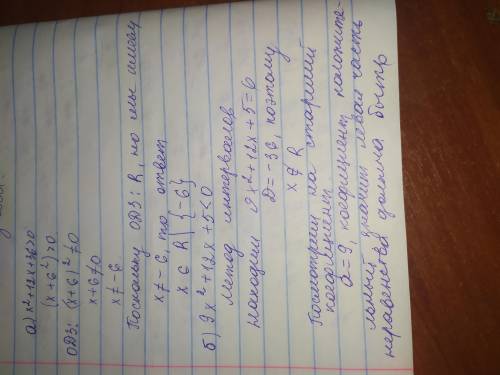 а) x²+12x+36>0
(x+6²)>0
ОДЗ: (x+6)²≠0
x+6≠0
x≠-6
Поскольку ОДЗ: R, но мы имеем
x≠-6, то ответ
x∈R∖{-6}
б) 9x²+12x+5<0
Метод интервалов
Находим 9x²+12x+5=6
D=-36, поэтому
x∉R
Посмотрим на старший
коэфициент
a=9, коэфициент положите-
льный, значит левая часть
неравенства должна быть